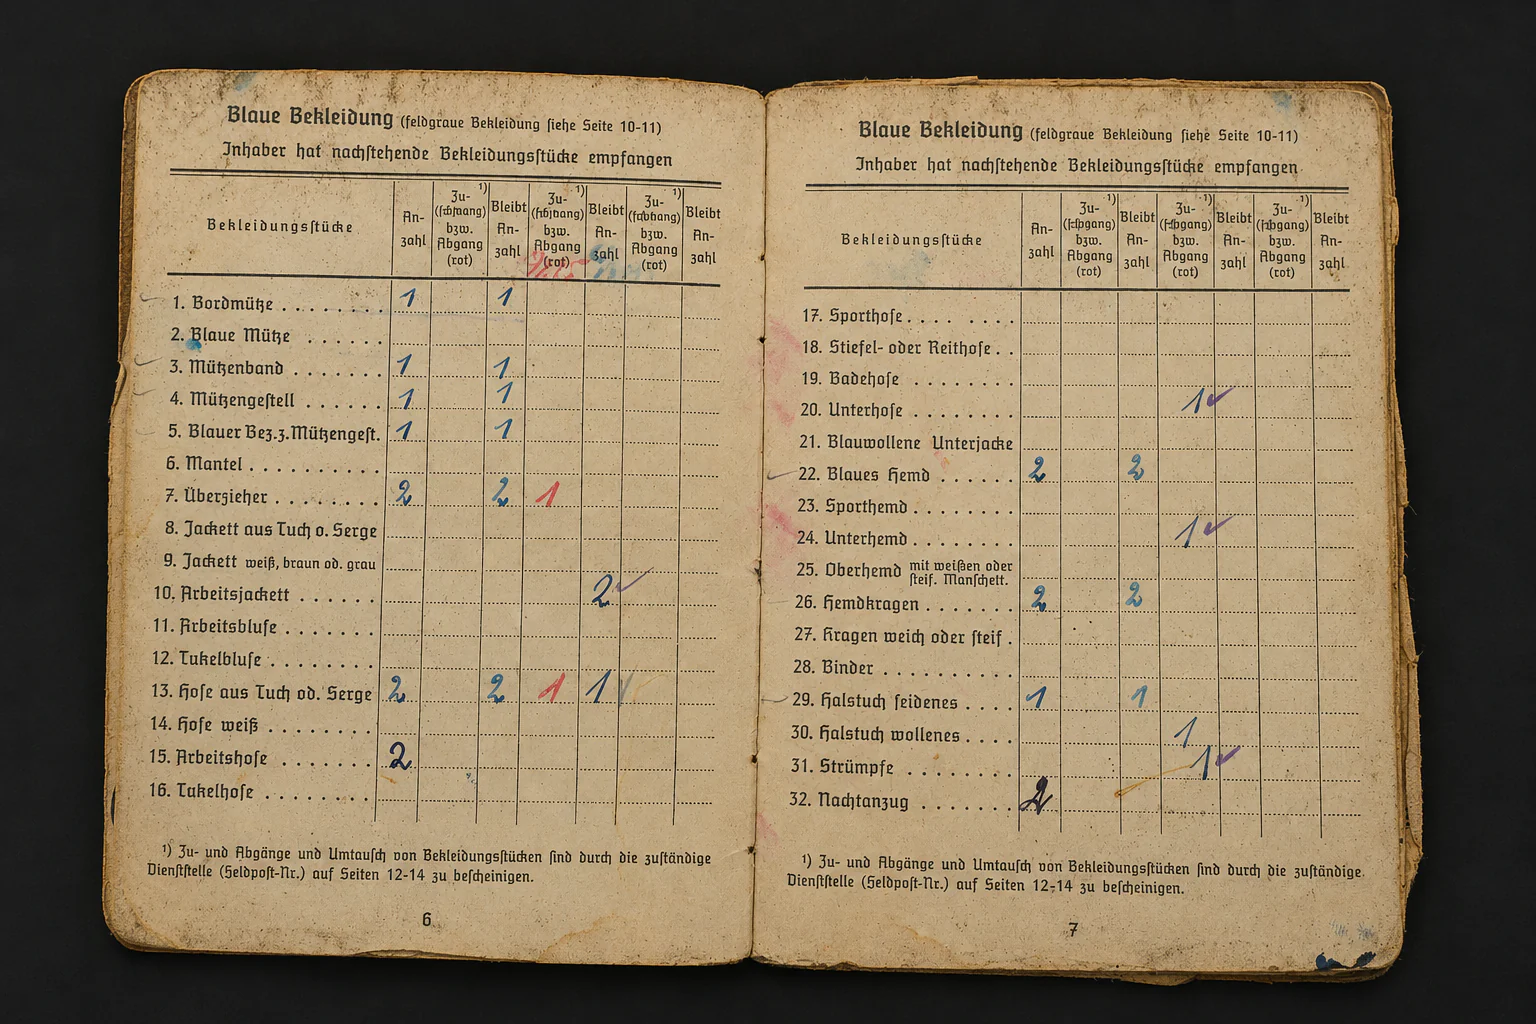 Blaue Bekleidung (feldgraue Bekleidung siehe Seite 10-11)
Inhaber hat nachstehende Bekleidungsstücke empfangen
Bekleidungsstücke An-zahl Zu- ¹) bzw. Abgang (rot) Bleibt An-zahl Zu- ¹) bzw. Abgang (rot) Bleibt An-zahl Zu- ¹) bzw. Abgang (rot) Bleibt An-zahl
1. Bordmütze . . . . . . . 1 1
2. Blaue Mütze . . . . . .
3. Mützenband . . . . . . . 1 1
4. Mützengestell . . . . . . 1 1
5. Blauer Bez.z.Mützengest. 1 1
6. Mantel . . . . . . . . . .
7. Überzieher . . . . . . . . 2 2 1
8. Jackett aus Tuch o. Serge
9. Jackett weiß, braun od. grau
10. Arbeitsjackett . . . . . . 2
11. Arbeitsbluse . . . . . . .
12. Takelbluse . . . . . . . .
13. Hose aus Tuch od. Serge 2 2 1 1
14. Hose weiß . . . . . . . .
15. Arbeitshose . . . . . . . 2
16. Takelhose . . . . . . . .
¹) Zu- und Abgänge und Umtausch von Bekleidungsstücken sind durch die zuständige
Dienststelle (Feldpost-Nr.) auf Seiten 12-14 zu bescheinigen.
6
Blaue Bekleidung (feldgraue Bekleidung siehe Seite 10-11)
Inhaber hat nachstehende Bekleidungsstücke empfangen
Bekleidungsstücke An-zahl Zu- ¹) bzw. Abgang (rot) Bleibt An-zahl Zu- ¹) bzw. Abgang (rot) Bleibt An-zahl Zu- ¹) bzw. Abgang (rot) Bleibt An-zahl
17. Sporthose . . . . . . . .
18. Stiefel- oder Reithose . .
19. Badehose . . . . . . . .
20. Unterhose . . . . . . . . 1
21. Blauwollene Unterjacke
22. Blaues Hemd . . . . . . 2 2
23. Sporthemd . . . . . . . .
24. Unterhemd . . . . . . . . 1
25. Oberhemd mit weißen oder steif. Manschett.
26. Hemdkragen . . . . . . . 2 2
27. Kragen weich oder steif .
28. Binder . . . . . . . . . .
29. Halstuch seidenes . . . . 1 1
30. Halstuch wollenes . . . . 1
31. Strümpfe . . . . . . . . 1
32. Nachtanzug . . . . . . . 2
¹) Zu- und Abgänge und Umtausch von Bekleidungsstücken sind durch die zuständige
Dienststelle (Feldpost-Nr.) auf Seiten 12-14 zu bescheinigen.
7